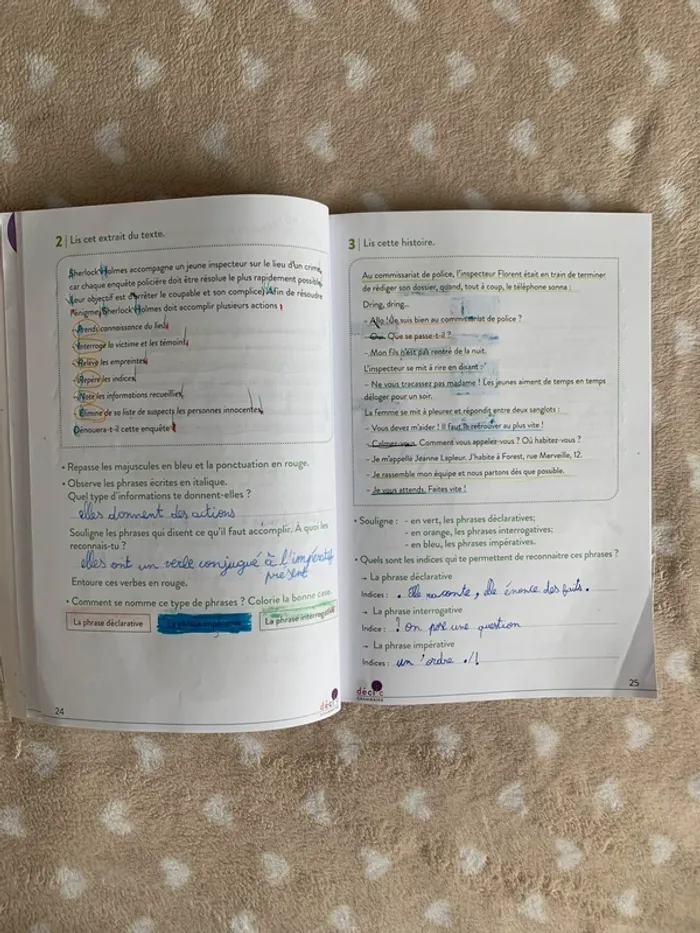 2 | Lis cet extrait du texte.
Sherlock Holmes accompagne un jeune inspecteur sur le lieu d'un crime,
car chaque enquête policière doit être résolue le plus rapidement possible.
Leur objectif est d'arrêter le coupable et son complice. Afin de résoudre
l'énigme, Sherlock Holmes doit accomplir plusieurs actions :
- Prends connaissance du lieu.
- Interroge la victime et les témoins.
- Relève les empreintes.
- Repère les indices.
- Note les informations recueillies.
- Élimine de sa liste de suspects les personnes innocentes.
Dénouera-t-il cette enquête ?
• Repasse les majuscules en bleu et la ponctuation en rouge.
• Observe les phrases écrites en italique.
Quel type d'informations te donnent-elles ?
elles donnent des actions
Souligne les phrases qui disent ce qu'il faut accomplir. À quoi les
reconnais-tu ?
elles ont un verbe conjugué à l'impératif
présent
Entoure ces verbes en rouge.
• Comment se nomme ce type de phrases ? Colorie la bonne case.
La phrase déclarative La phrase impérative La phrase interrogative
24
déclic
GRAMMAIRE
3 | Lis cette histoire.
Au commissariat de police, l'inspecteur Florent était en train de terminer
de rédiger son dossier, quand, tout à coup, le téléphone sonna :
Dring, dring...
- Allo ! Je suis bien au commissariat de police ?
- Oui. Que se passe-t-il ?
- Mon fils n'est pas rentré de la nuit.
L'inspecteur se mit à rire en disant :
- Ne vous tracassez pas madame ! Les jeunes aiment de temps en temps
déloger pour un soir.
La femme se mit à pleurer et répondit entre deux sanglots :
- Vous devez m'aider ! Il faut le retrouver au plus vite !
- Calmez-vous. Comment vous appelez-vous ? Où habitez-vous ?
- Je m'appelle Jeanne Lapleur. J'habite à Forest, rue Merveille, 12.
- Je rassemble mon équipe et nous partons dès que possible.
- Je vous attends. Faites vite !
• Souligne : - en vert, les phrases déclaratives;
- en orange, les phrases interrogatives;
- en bleu, les phrases impératives.
• Quels sont les indices qui te permettent de reconnaitre ces phrases ?
→ La phrase déclarative
Indices : . Elle raconte, elle énonce des faits.
→ La phrase interrogative
Indice : ? on pose une question
→ La phrase impérative
Indices : un ordre . / !
déclic
GRAMMAIRE
25